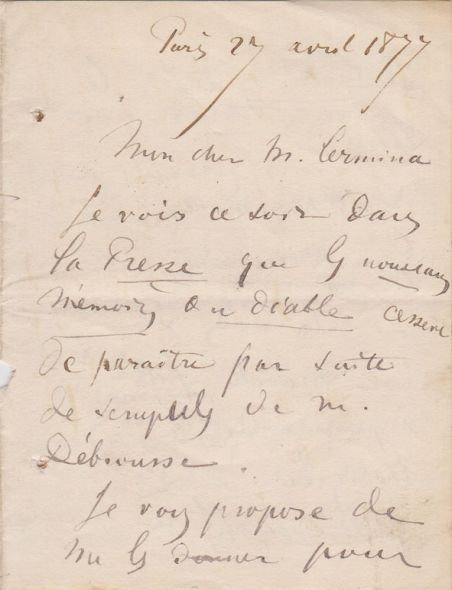 Paris 27 avril 1877
Mon cher M. Lermina
Je vois ce soir dans
la Presse que les nouveaux
mémoires du diable cessent
de paraître par suite
de scrupules de M.
Debrousse.
Je vous propose de
me les donner pour